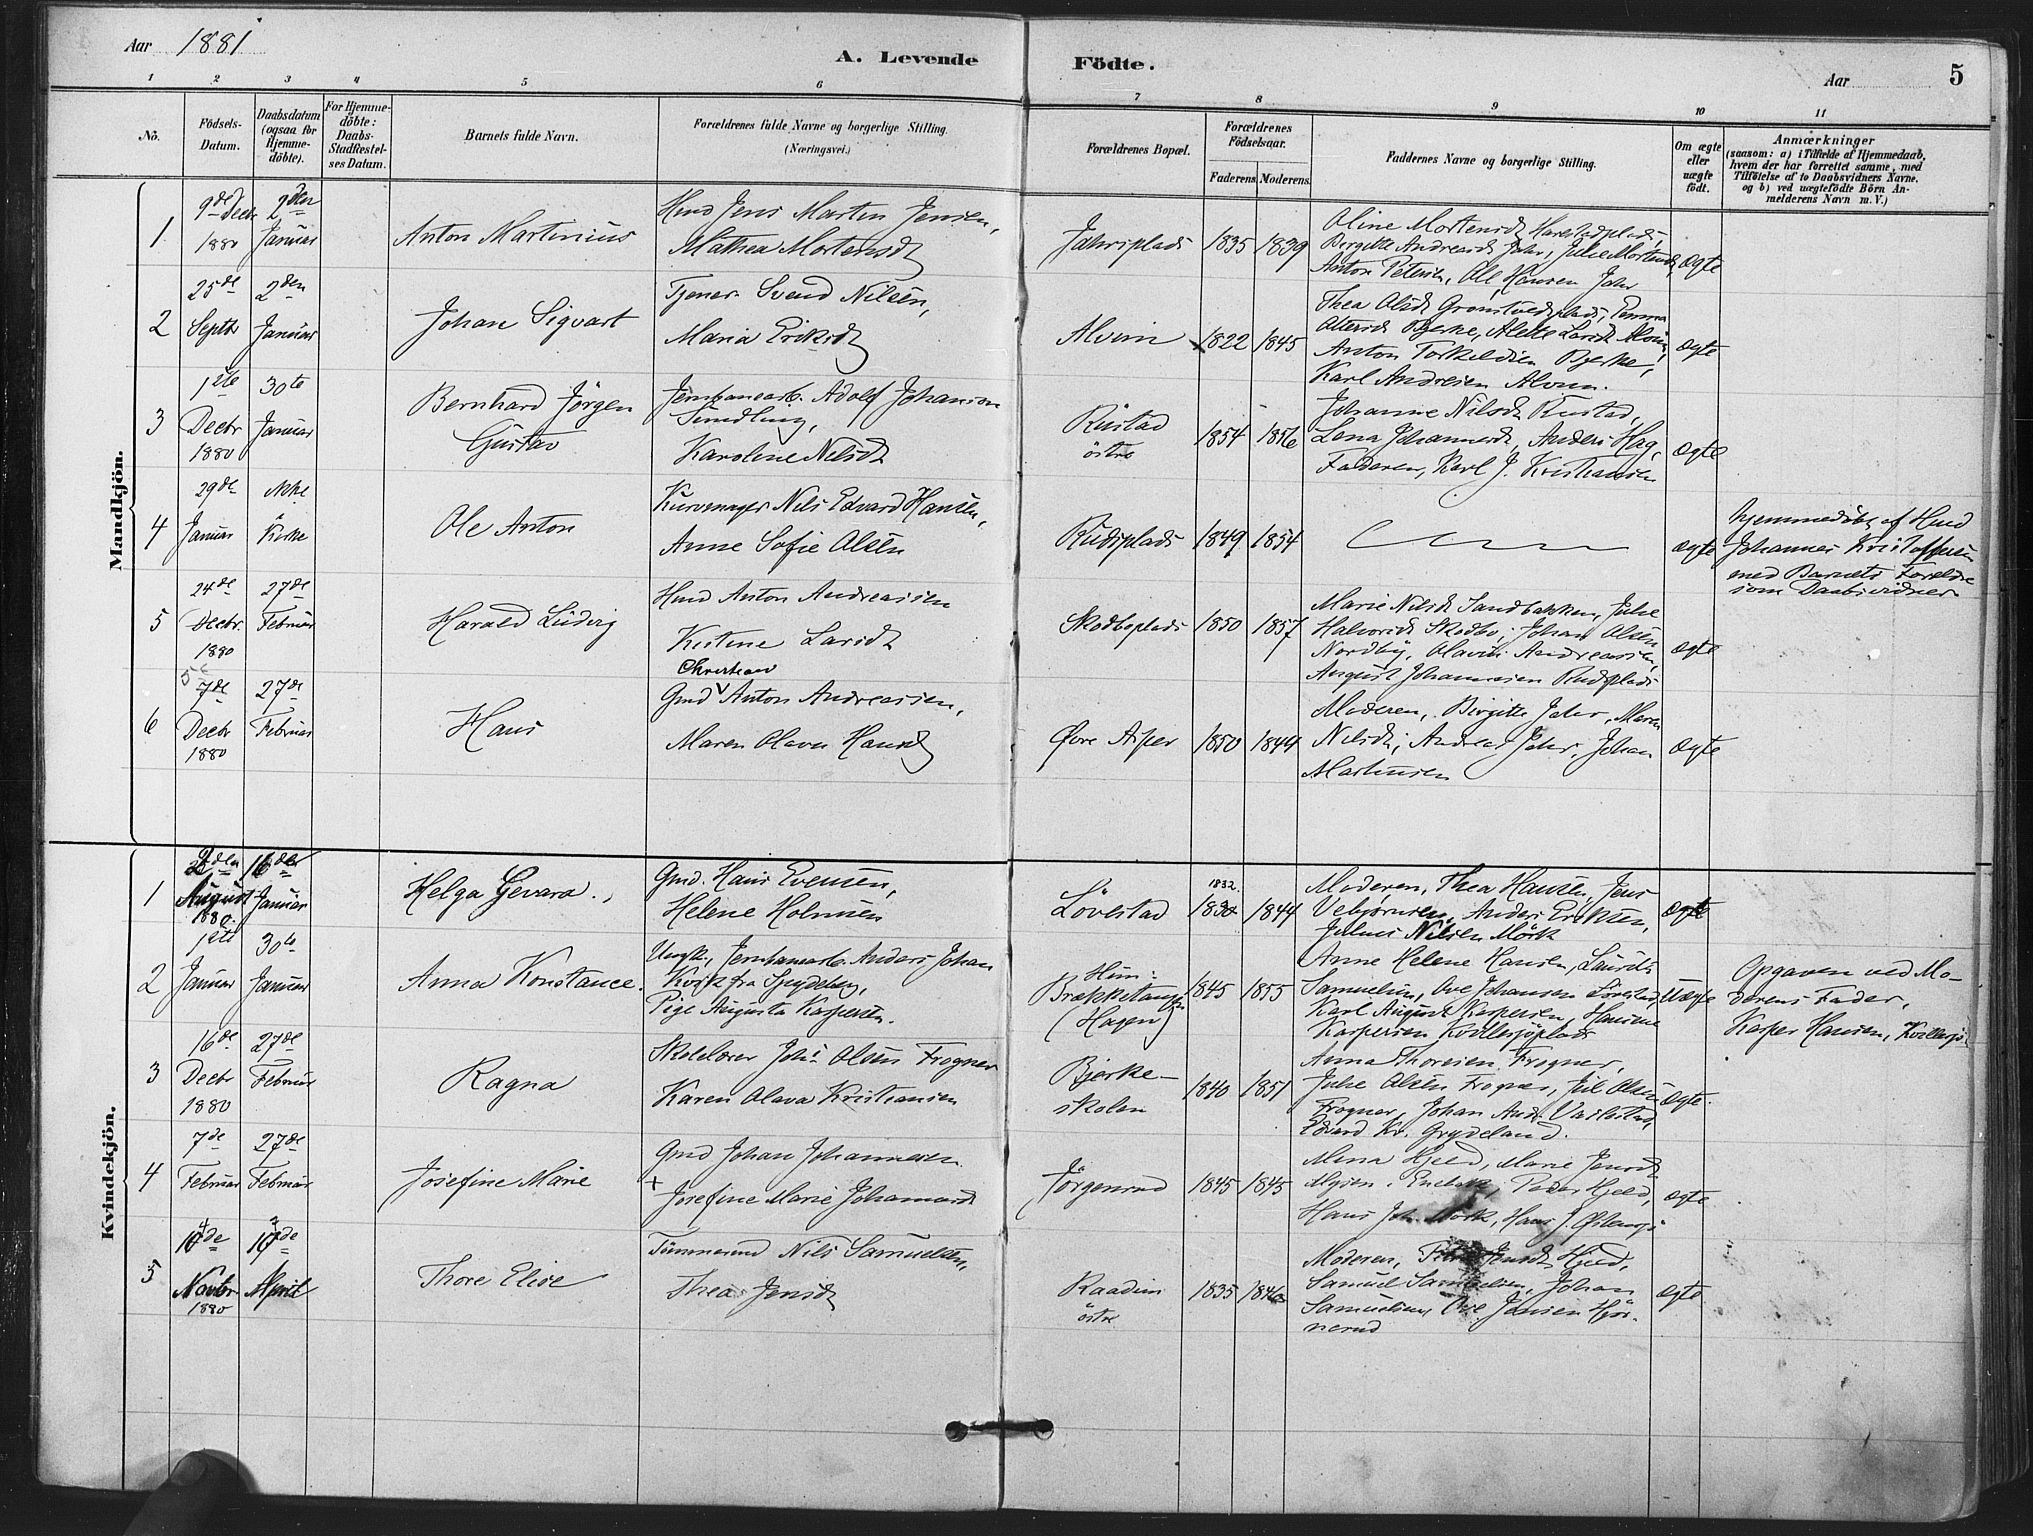 Aar 1881
A. Levende Födte.
Aar
5
1 2 3 4 5 6 7 8 9 10 11
No.
Födsels-
Datum.
Daabsdatum
(ogsaa for
Hjemme-
döbte).
For Hjemme-
döbte:
Daabs-
Stadfestel-
ses Datum.
Barnets fulde Navn.
Forældrenes fulde Navne og borgerlige Stilling.
(Næringsvei.)
Forældrenes Bopæl.
Forældrenes
Födselsaar.
Faderens. Moderens.
Faddernes Navne og borgerlige Stilling.
Om ægte
eller
uægte
födt.
Anmærkninger
(saasom: a) i Tilfælde af Hjemmedaab,
hvem der har forrettet samme, med
Tilföielse af to Daabsvidners Navne.
og b) ved uægtefödte Börn An-
melderens Navn m. V.)
Mandkjön.
1
9de Decbr
1880
2den
Januar
Anton Martinius
Hmd Jens Martin Jensen,
Mathea Mortensdt
Jahrsplads
1835 1839
Oline Mortensdt Harestadplads,
Birgitte Andreasdt Jahr, Julie Mortensdt,
Anton Petersen, Ole Hansen Jahr
Ægte
2
25de
Septbr
2den
Januar
Johan Sigvart
Tjener Svend Nilsen,
Maria Eriksdt
Alvim
1822 1845
Thea Olsdt Grønstvedtplads, Emma
Bjerke, Alette Larsdt Alvim,
Anton Torkeldsen Bjerke,
Karl Andresen Alvim.
Ægte
3
1ste
Decbr
1880
30te
Januar
Bernhard Jörgen
Gustav
Jernbanearb. Adolf Johanson
Smedling,
Karoline Nilsdt
Rustad
östre
1854 1856
Johanne Nilsdt Rustad,
Lena Johannesdt, Anders Hag,
Faderen, Karl J. Kristiansen
Ægte
4
29de
Januar
ikke
i Kirke
Ole Anton
Kurvmager Nils Edvard Hansen,
Anne Sofie Olsen
Rudsplads
1849 1854
Ægte
hjemmedöbt af Hmd
Johannes Kristoffersen
med Barnets Forældre
som Daabsvidner
5
24de
Decbr
1880
27de
Februar
Harald Ludvig
Hmd Anton Andreassen
Kistine Larsdt
Skodboplads
1850 1857
Marie Nilsdt Sandbakken, Julie
Halvorsdt Skodbo, Johan Olsen
Nordby, Olavus Andreassen,
August Johannesen Rudsplads
Ægte
6
7de
Decbr
1880
27de
Februar
Hans
Christian
Gmd Anton Andreassen,
Maren Olava Hansdt
Øvre Asper
1850 1844
Moderen, Birgitte Jahr, Maren
Nilsdt, Andreas Jahr, Johan
Martinsen
Ægte
Kvindekjön.
1
August
1880
16de
Januar
Helga Gevara.
Gmd. Hans Evensen,
Helene Holmsen
Lövestad
1832
1844
Moderen, Thea Hansen, Jens
Vebjørnsen, Anders Eriksen,
Julius Nilsen Mörk
Ægte
2
1ste
Januar
30te
Januar
Anna Konstance.
Ungk., Jernbanearb. Anders Johan
Kvik fra Spydeberg,
Pige Augusta Kaspersen.
Brækketangen
(Hagen)
1845 1855
Anne Helene Hansen, Laurits
Samuelsen, Ove Johansen Lövestad,
Karl August Kaspersen, Hansine
Kaspersen Kollesjöplads
Uægte
Opgaven ved Mo-
derens Fader,
Kasper Hansen, Kollersjö
3
16de
Decbr
1880
27de
Februar
Ragna
Skolelærer Johs Olsen Frogner
Karen Olava Kristiansen
Bjerke-
skolen
1840 1851
Anna Thoresen Frogner,
Julie Olsen Frogner, Juli Olsen
Frogner, Johan And.
Edvard Kr. Grydeland.
Ægte.
4
7de
Februar
27de
Februar
Josefine Marie
Gmd Johan Johannesen
Josefine Marie Johannesdt
Jörgenrud
1845 1845
Mina Hjeld, Marie Jensdt
Peder Hjeld,
Hans Joh. Mörk, Hans J.
Ægte
5
Novbr
1880
April
Thore Elise
Tömmermd Nils Samuelsen,
Thea Jensdt
Raadim
östre
1835 1846
Moderen, Jensdt Hjeld,
Samuel Samuelsen, Johan
Samuelsen, Ove Jansen Hjör-
nerud
Ægte